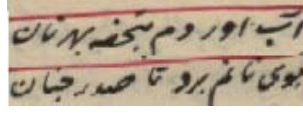 آب آوردم بتحفه بهر نان
بوی نانم برد تا صدر جنان